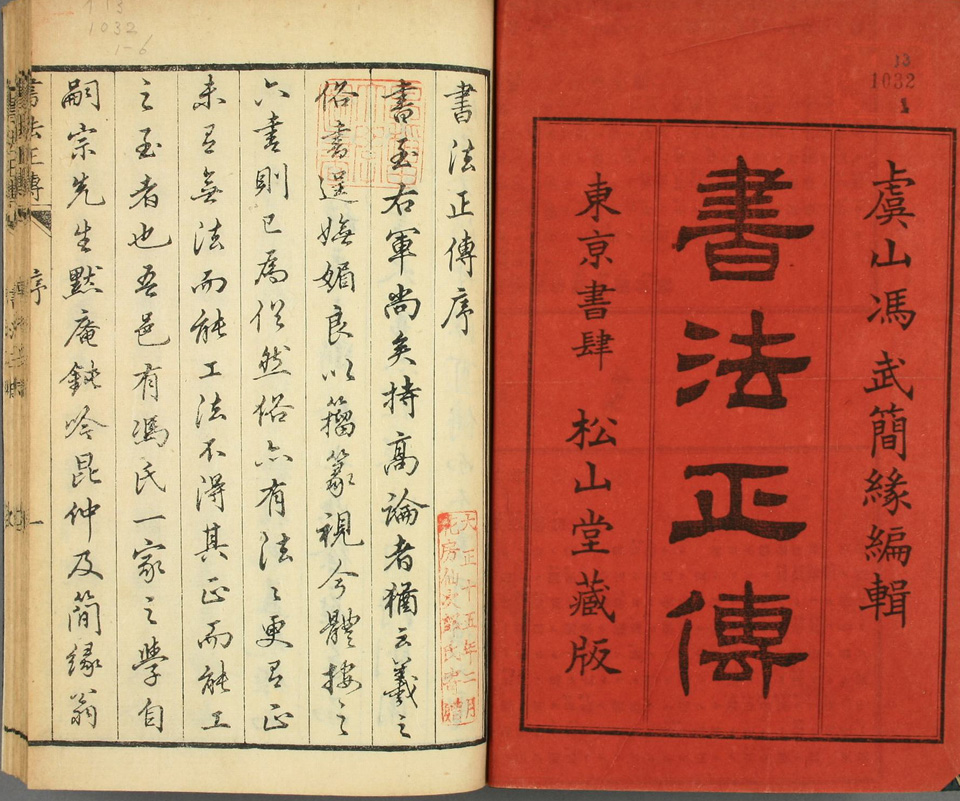 13
1032
1
虞山馮武簡緣編輯
書法正傳
東京書肆 松山堂藏版
1032
1-6
書法正傳序
書至右軍尚矣持高論者猶云羲之
俗書逞嫵媚良以籀篆視今體接之
六書則已為俗然俗亦有法〻更有正
未有無法而能工法不得其正而能工
之至者也吾邑有馮氏一家之學自
嗣宗先生默庵鈍吟昆仲及簡緣翁
大正十五年二月
花房仙次郎氏寄贈
書法正傳
序
一